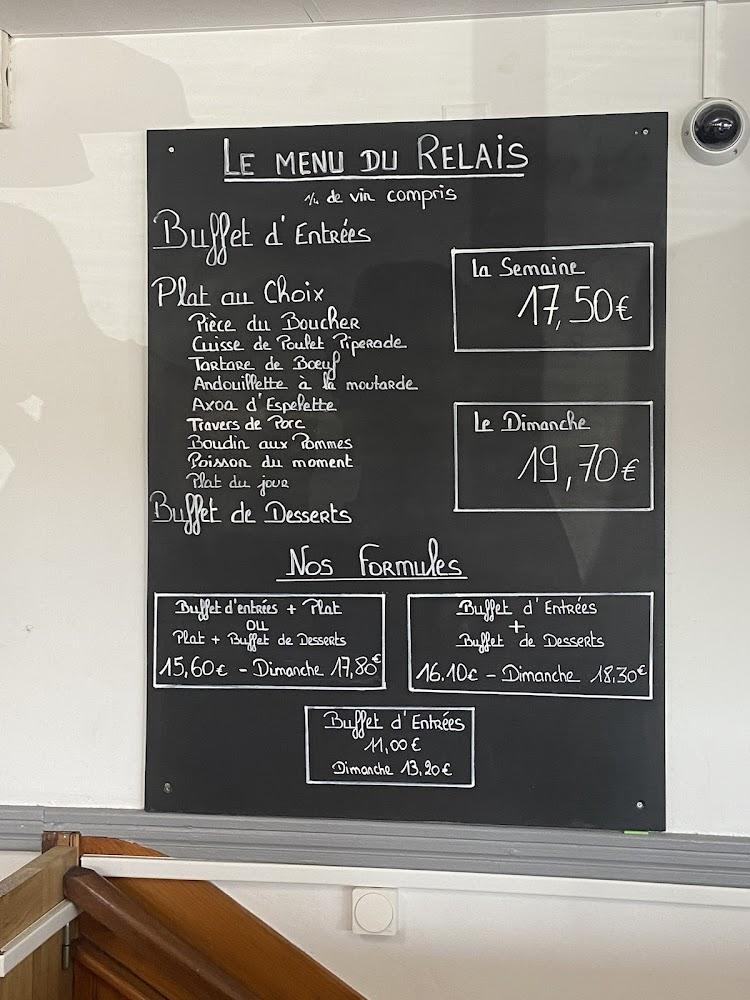 LE MENU DU RELAIS
1/4 de vin compris
Buffet d'Entrées
La Semaine
17,50€
Plat au Choix
Pièce du Boucher
Cuisse de Poulet Piperade
Tartare de Bœuf
Andouillette à la moutarde
Axoa d'Espelette
Travers de Porc
Boudin aux Pommes
Poisson du moment
Plat du jour
Le Dimanche
19,70€
Buffet de Desserts
Nos Formules
Buffet d'entrées + Plat
ou
Plat + Buffet de Desserts
15,60€ - Dimanche 17,80€
Buffet d'Entrées
+
Buffet de Desserts
16.10€ - Dimanche 18,30€
Buffet d'Entrées
11,00€
Dimanche 13,20€